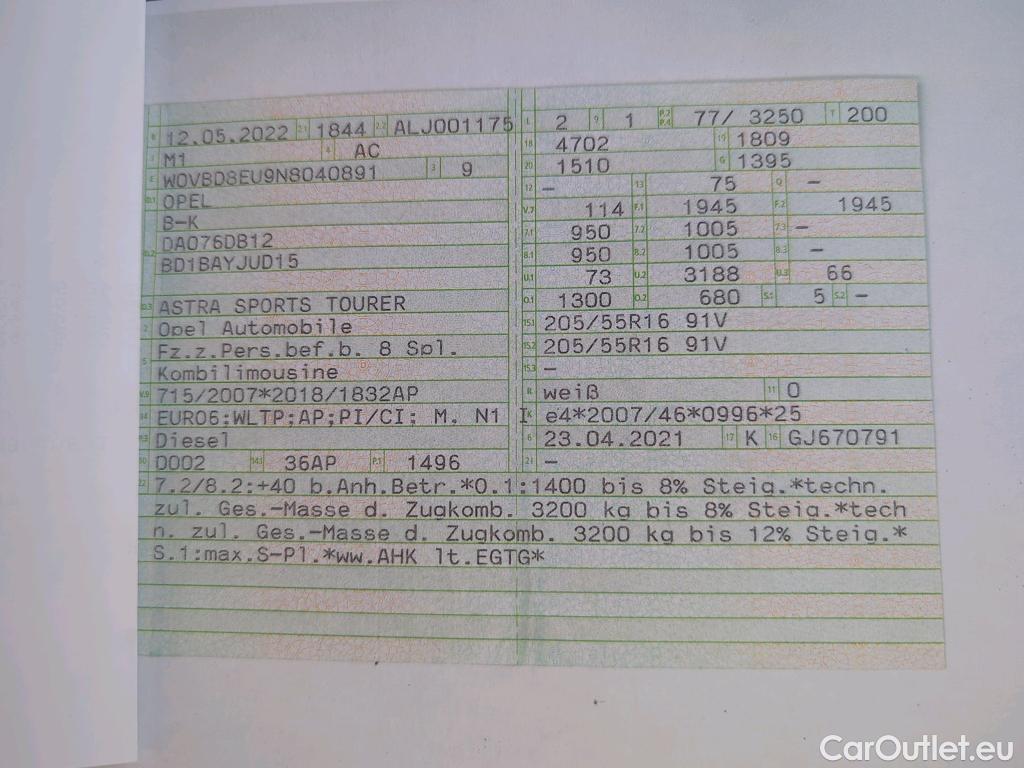 B 12.05.2022 2.1 1844 2.2 ALJ001175
J M1 4 AC
E W0VBD8EU9N8040891 3 9
D.1 OPEL
B-K
D.2 DA076DB12
BD1BAYJUD15
D.3 ASTRA SPORTS TOURER
2 Opel Automobile
5 Fz.z.Pers.bef.b. 8 Spl.
Kombilimousine
V.9 715/2007*2018/1832AP
14 EURO6;WLTP;AP;PI/CI; M, N1 I
P.3 Diesel
10 0002 14.1 36AP P.1 1496
L 2 9 1 P.2 P.4 77/ 3250 T 200
18 4702 19 1809
20 1510 G 1395
12 – 13 75 Q –
V.7 114 F.1 1945 F.2 1945
7.1 950 7.2 1005 7.3 –
8.1 950 8.2 1005 8.3 –
U.1 73 U.2 3188 U.3 66
O.1 1300 O.2 680 S.1 5 S.2 –
15.1 205/55R16 91V
15.2 205/55R16 91V
15.3 –
R weiß 11 0
K e4*2007/46*0996*25
6 23.04.2021 17 K 16 GJ670791
21 –
22 7.2/8.2:+40 b.Anh.Betr.*O.1:1400 bis 8% Steig.*techn.
zul. Ges.-Masse d. Zugkomb. 3200 kg bis 8% Steig.*tech
n. zul. Ges.-Masse d. Zugkomb. 3200 kg bis 12% Steig.*
S.1:max.S-Pl.*ww.AHK lt.EGTG*
CarOutlet.eu